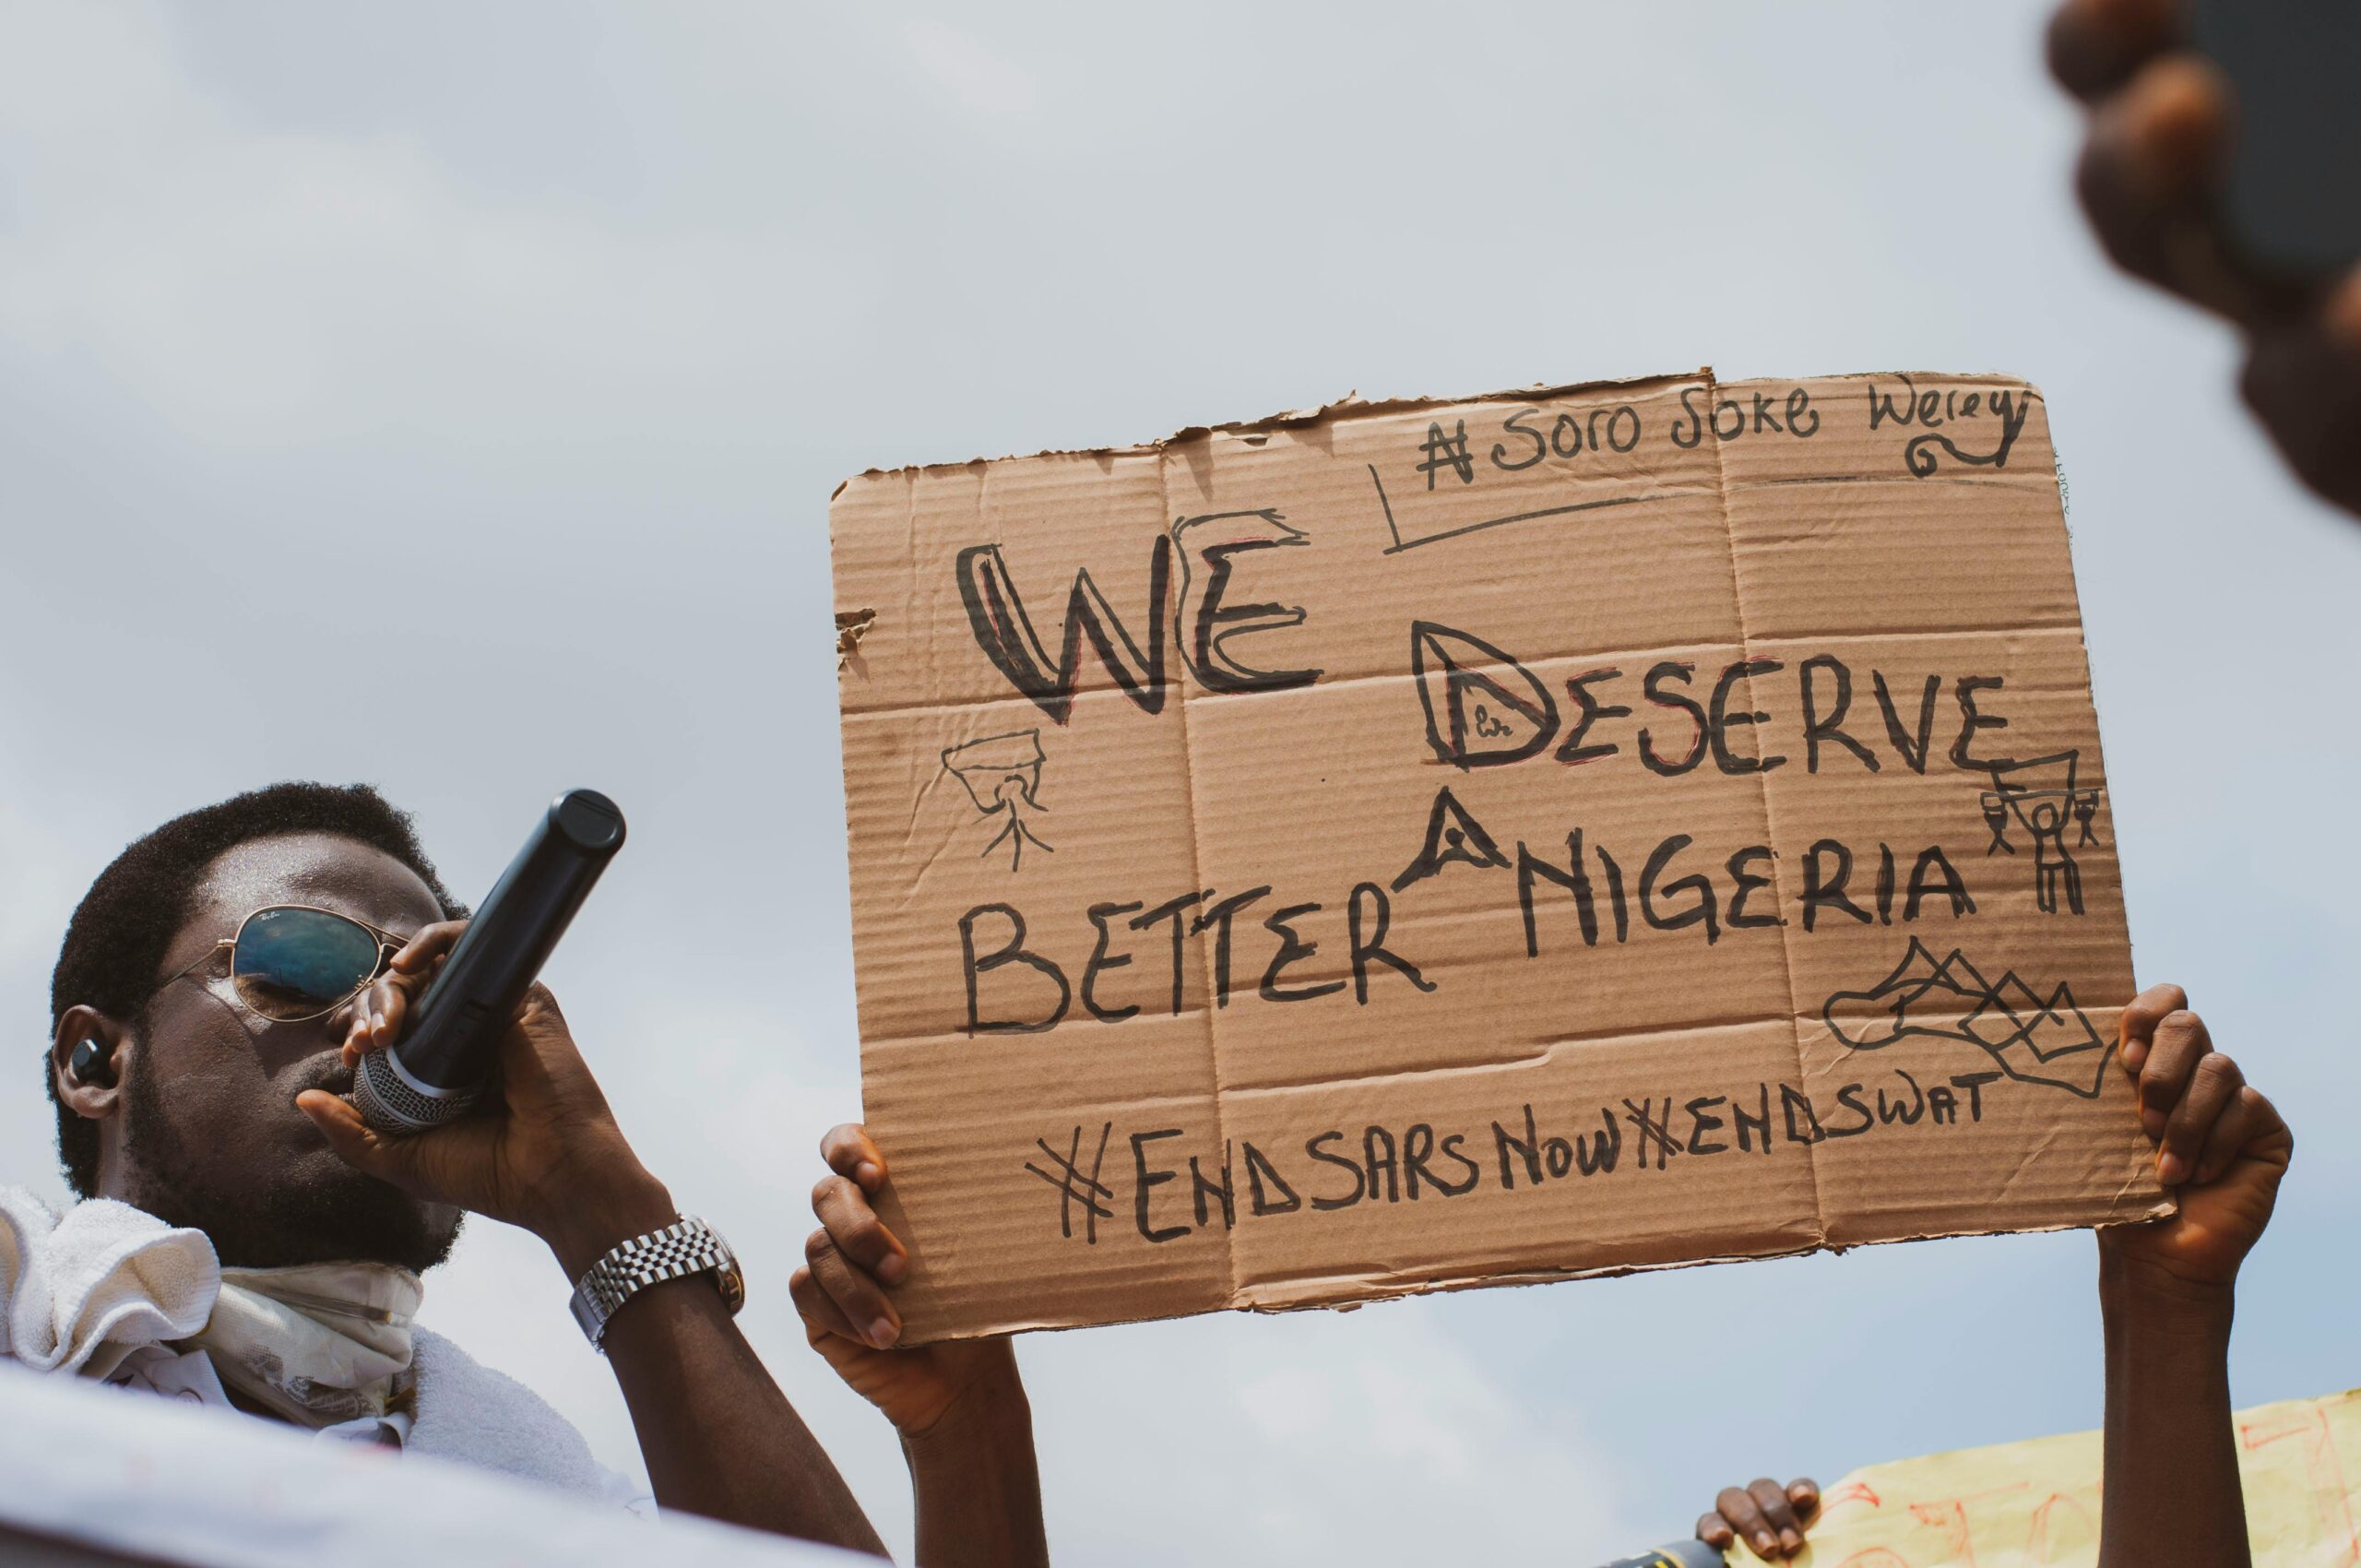 # Soro Soke Werey
WE
DESERVE
BETTER A NIGERIA
#ENDSARS NOW #ENDSWAT
Ray-Ban